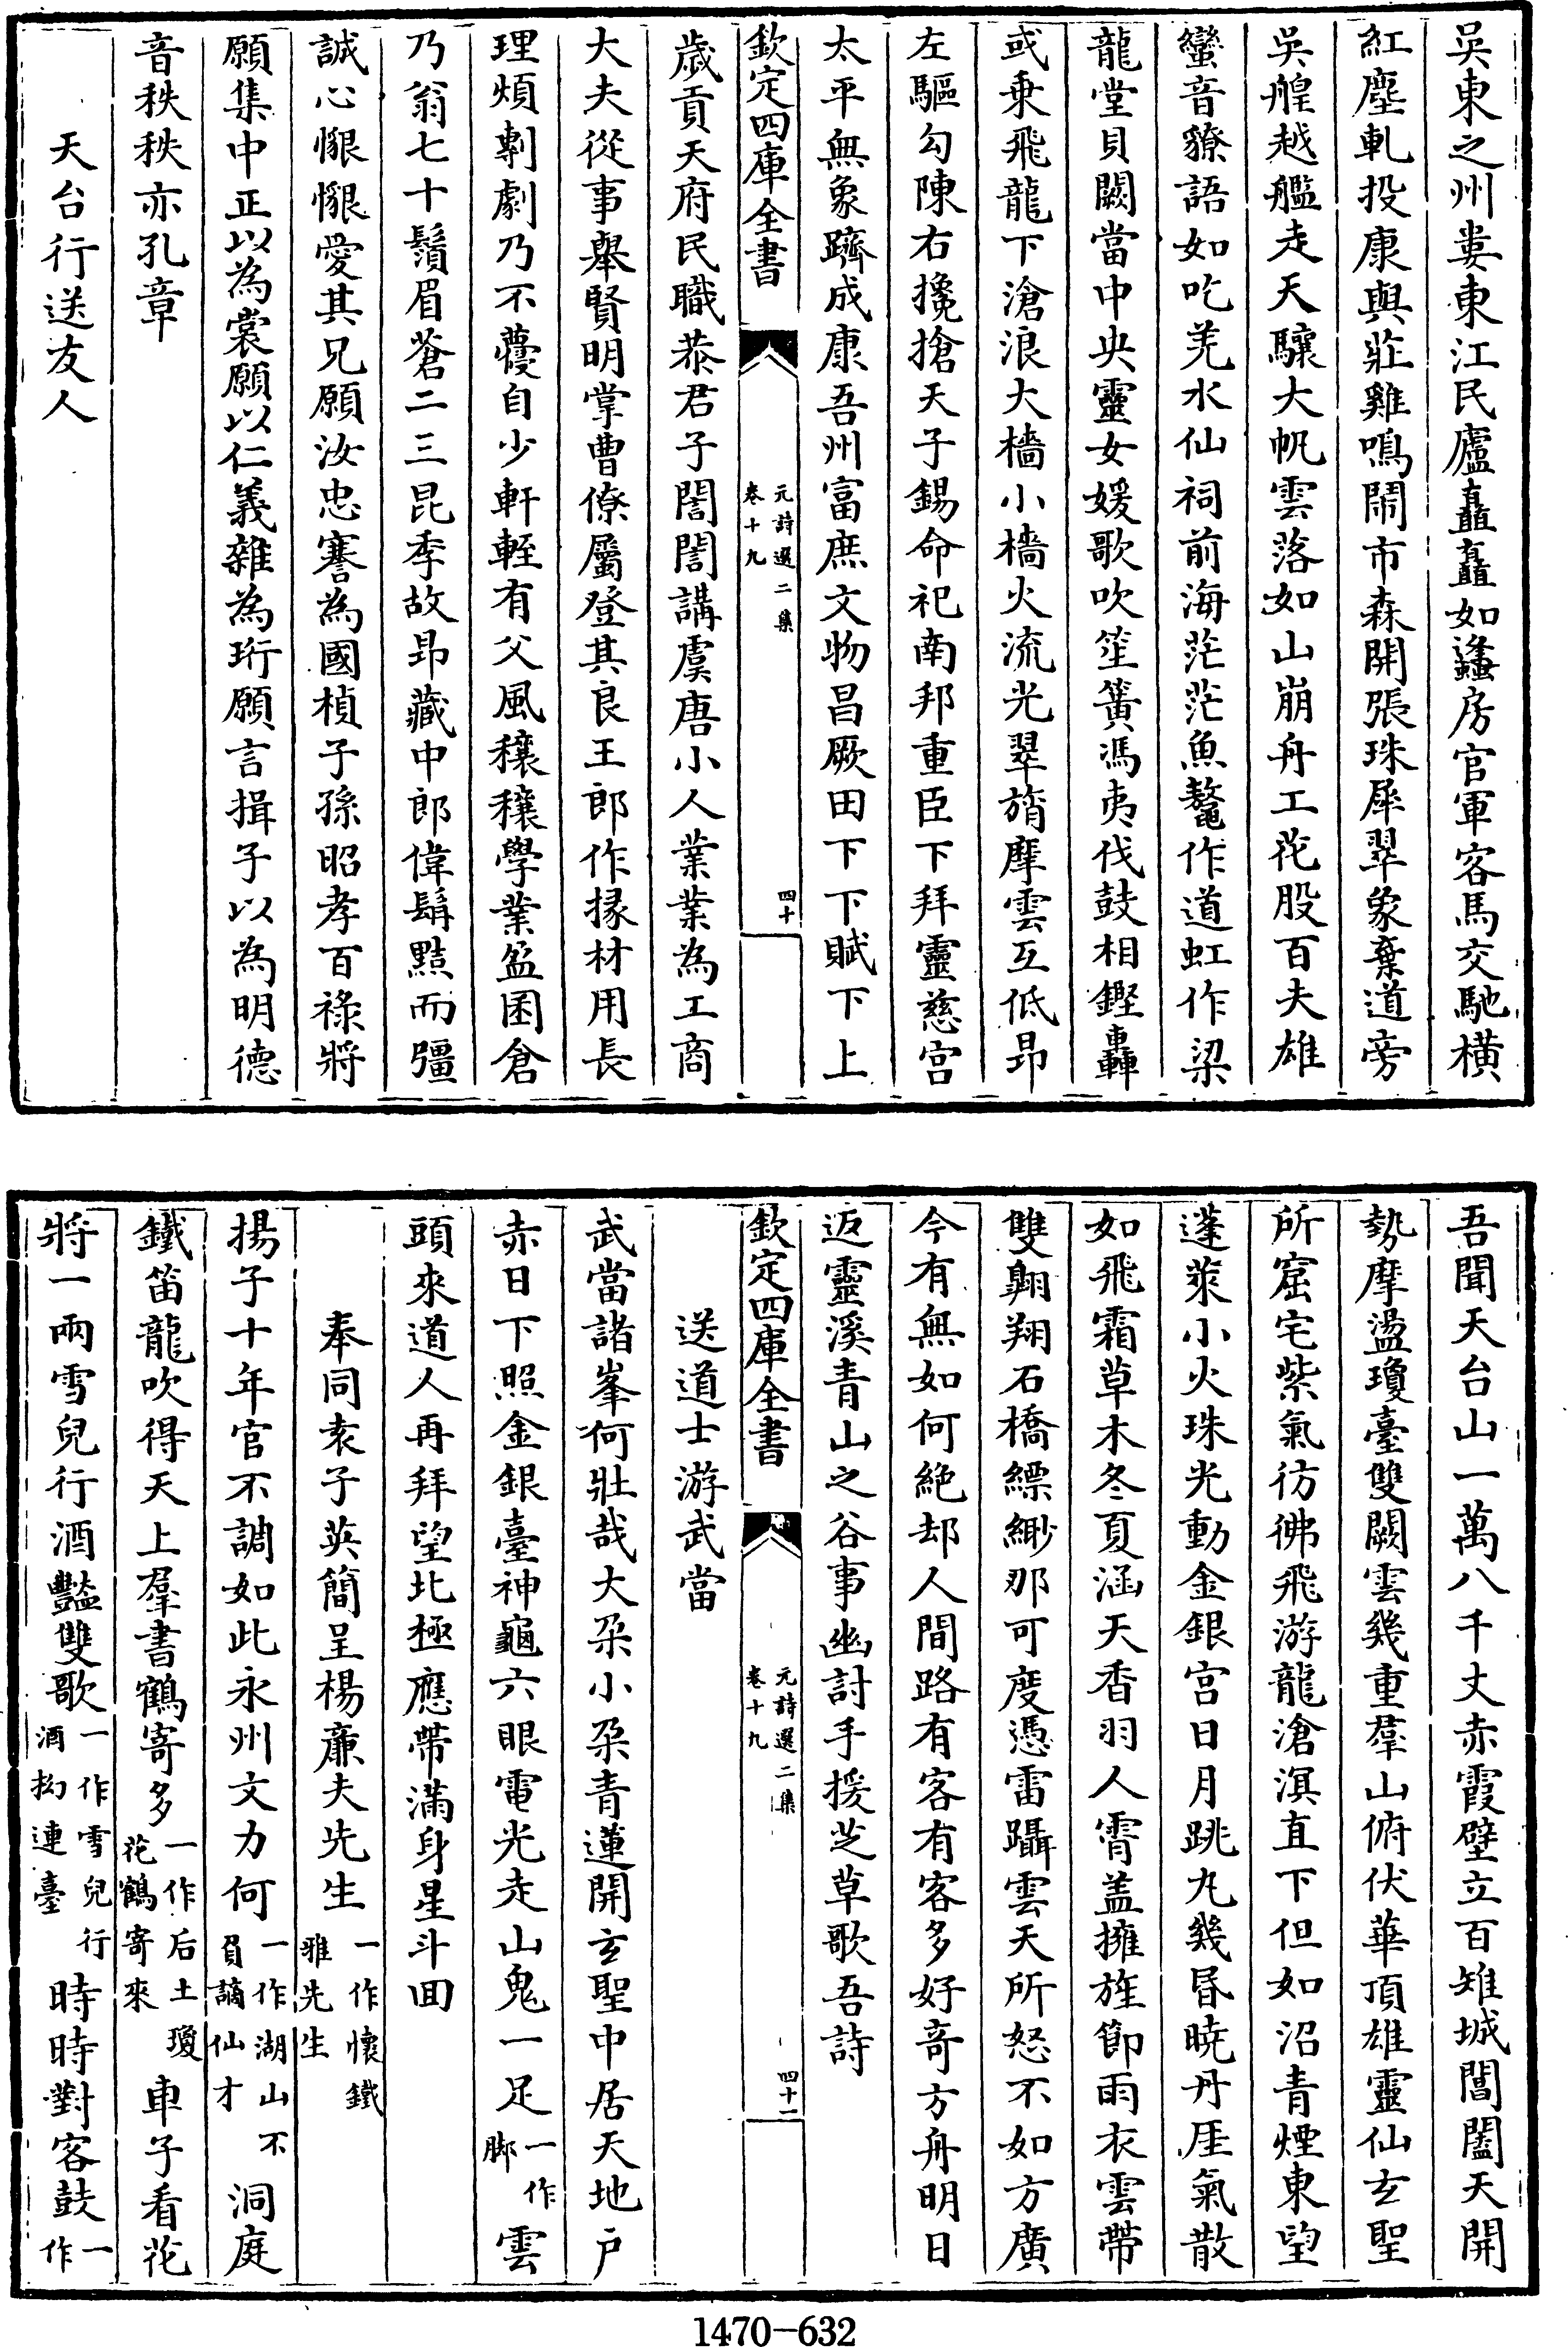 吳東之州婁東江民廬矗矗如蠭房官軍客馬交馳橫
紅塵軋投康與莊雞鳴鬧市森開張珠犀翠象棄道旁
吳艎越艦走天驤大帆雲落如山崩舟工花股百夫雄
蠻音獠語如吃羌水仙祠前海茫茫魚鼇作道虹作梁
龍堂貝闕當中央靈女媛歌吹笙簧馮夷伐鼓相鏗轟
或乗飛龍下滄浪大檣小檣火流光翠旓摩雲互低昂
左驅勾陳右攙搶天子錫命祀南邦重臣下拜靈慈宫
太平無象躋成康吾州富庶文物昌厥田下下賦下上
欽定四庫全書
元詩選二集
卷十九
四十
歲貢天府民職恭君子誾誾講虞唐小人業業為工商
大夫從事舉賢明掌曹僚屬登其良王郎作掾材用長
理煩剸劇乃不蘉自少軒輊有父風穰穰學業盈囷倉
乃翁七十鬚眉蒼二三昆季故昂藏中郎偉髯黠而彊
誠心懇懇愛其兄願汝忠謇為國楨子孫昭孝百祿將
願集中正以為裳願以仁義雜為珩願言揖子以為明德
音秩秩亦孔章
天台行送友人
吾聞天台山一萬八千丈赤霞壁立百雉城閶闔天開
勢摩盪瓊臺雙闕雲幾重羣山俯伏華頂雄靈仙玄聖
所窟宅紫氣彷彿飛游龍滄溟直下但如沼青煙東望
蓬萊小火珠光動金銀宫日月跳丸幾昏曉丹厓氣散
如飛霜草木冬夏涵天香羽人霄盖擁旌節雨衣雲帶
雙翺翔石橋縹緲那可度憑雷躡雲天所怒不如方廣
今有無如何絶却人間路有客有客多好竒方舟明日
返靈溪青山之谷事幽討手援芝草歌吾詩
欽定四庫全書
元詩選二集
卷十九
四十一
送道士游武當
武當諸峯何壯哉大朶小朶青蓮開玄聖中居天地户
赤日下照金銀臺神龜六眼電光走山鬼一足一作脚雲
頭來道人再拜望北極應帶滿身星斗回
奉同袁子英簡呈楊亷夫先生一作懷鐵雅先生
揚子十年官不調如此永州文力何一作湖山不負謫仙才洞庭
鐵笛龍吹得天上羣書鶴寄多一作后土瓊花鶴寄來車子看花
將一兩雪兒行酒豔雙歌一作雪兒行酒拗連臺時時對客鼓一作
1470-632